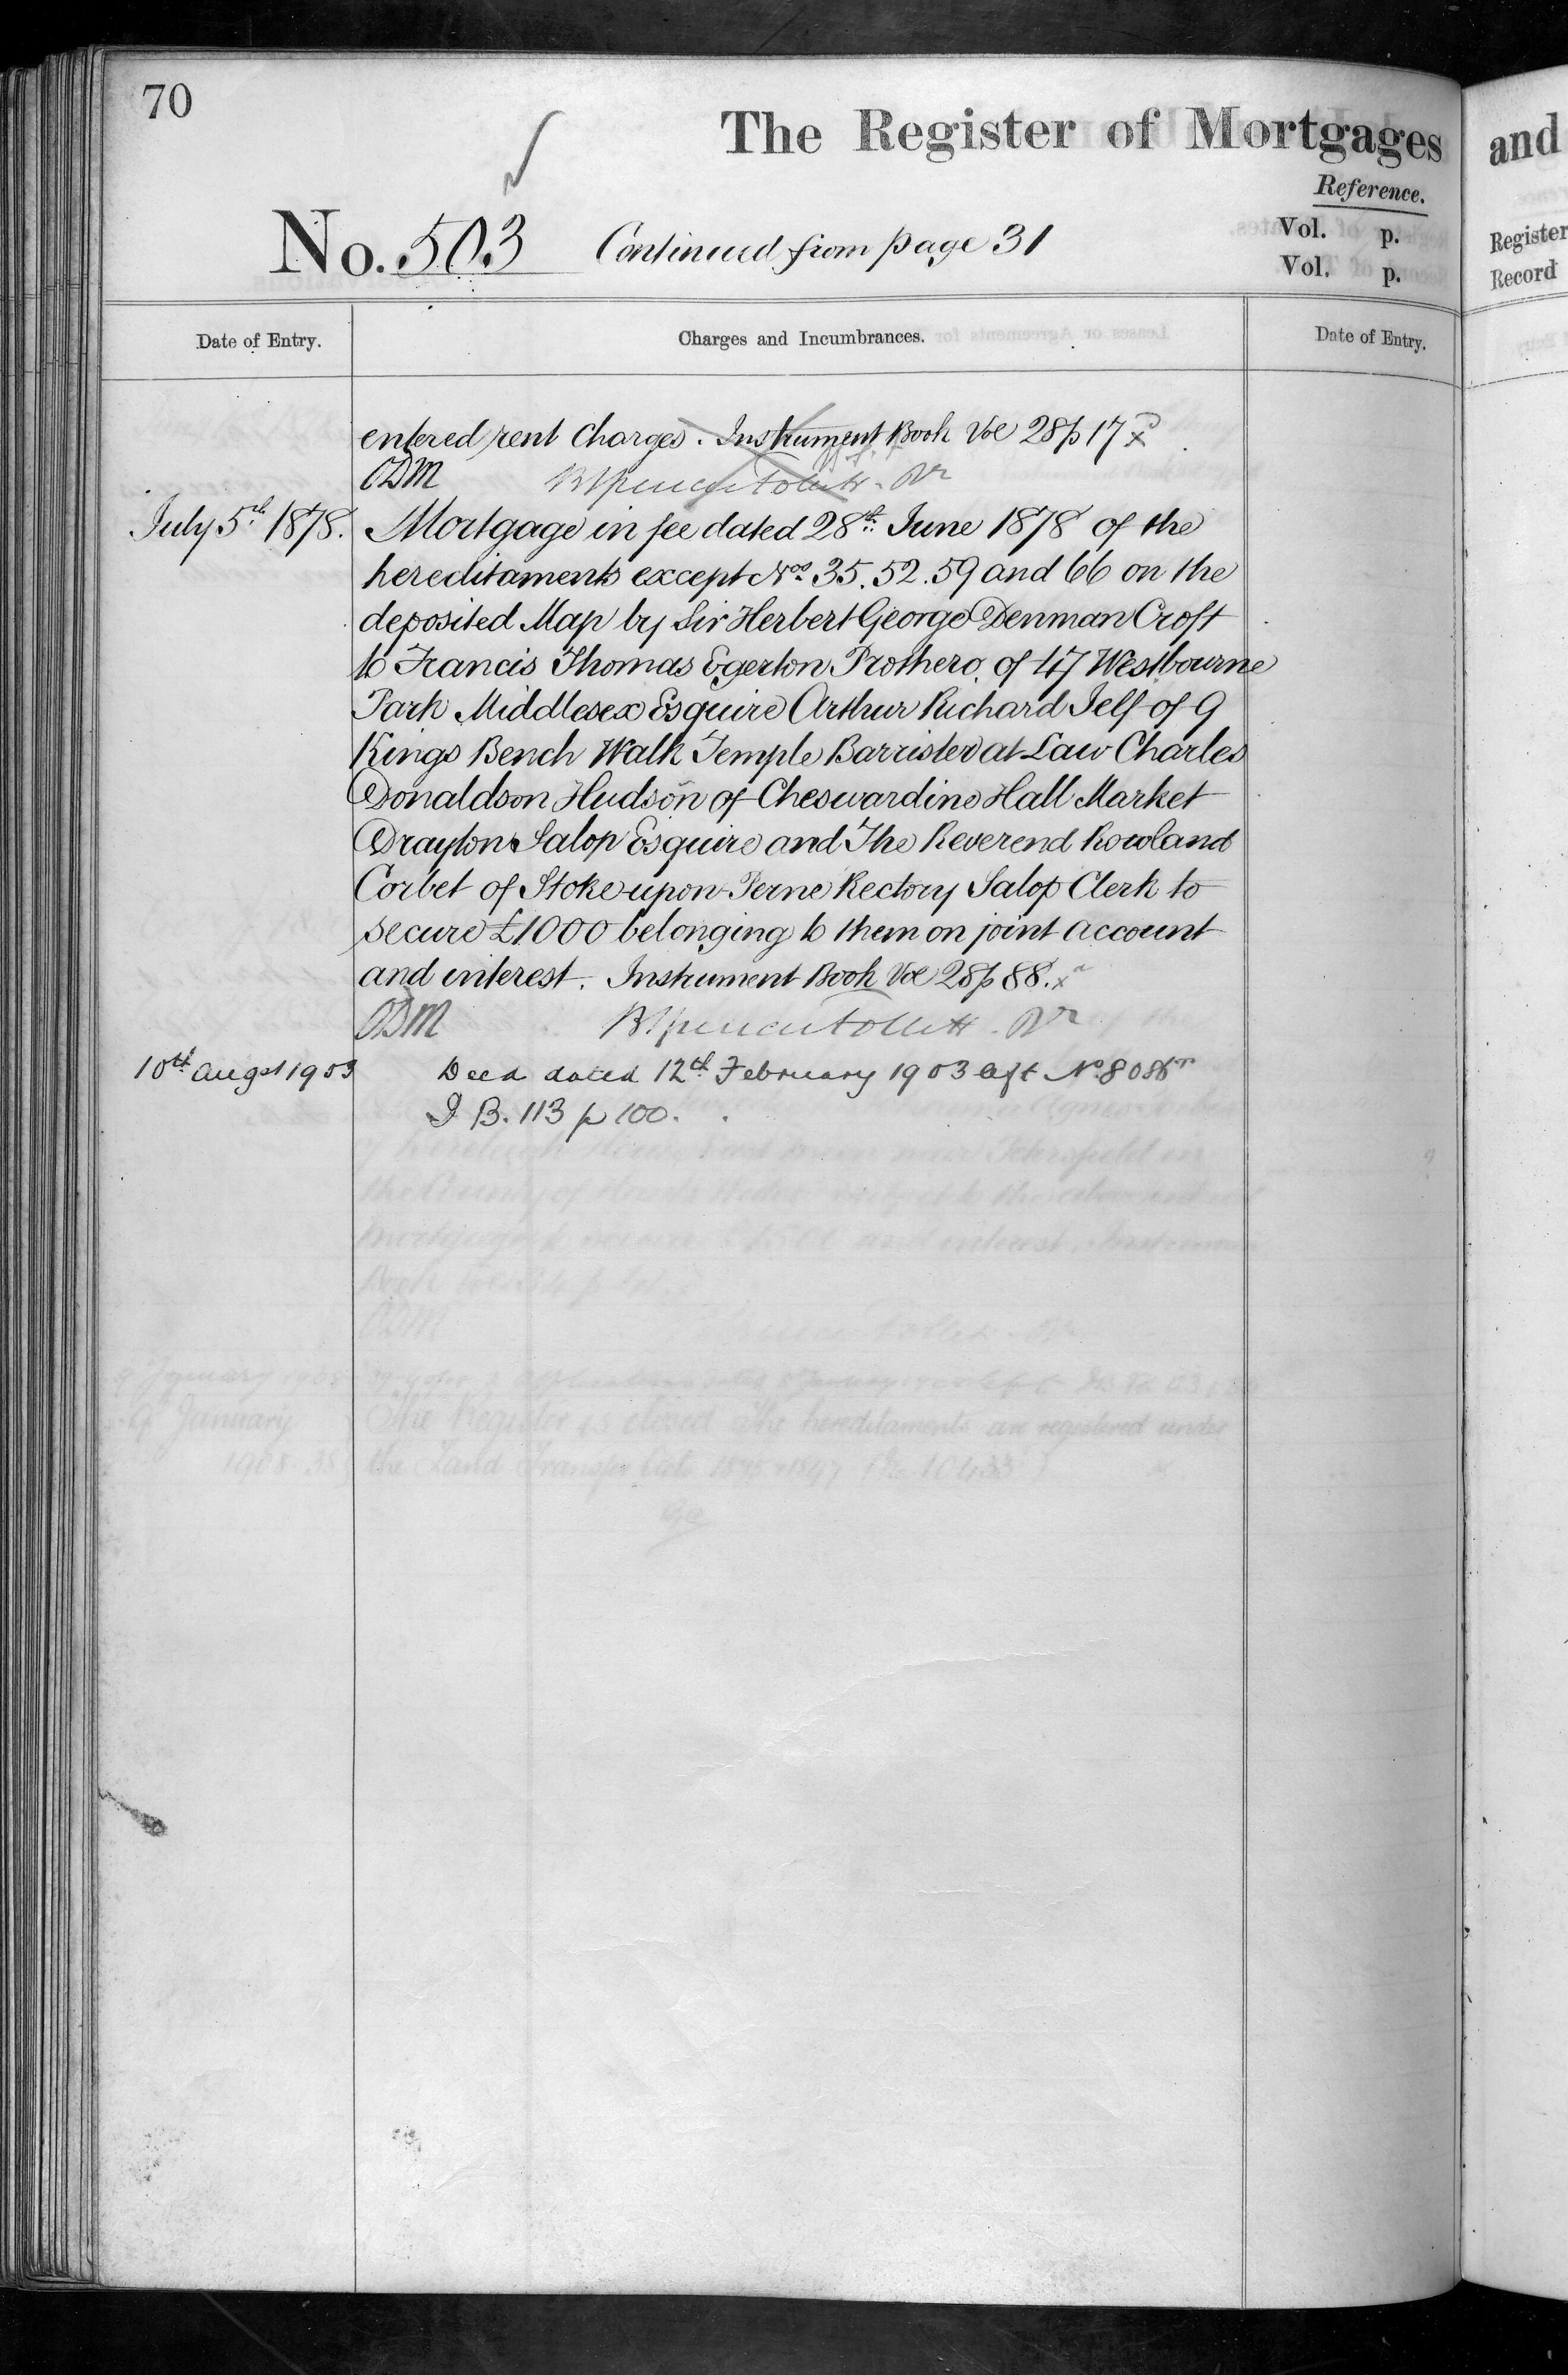 70
The Register of Mortgages
and
Reference.
Vol. p.
Vol. p.
Register
Record
No. 503 Continued from page 31
Date of Entry.
Charges and Incumbrances.
Date of Entry.
entered rent Charges. Instrument Book Vol 28 p 17
ODM
July 5th 1878.
Mortgage in fee dated 28th June 1878 of the
hereditaments except Nos 35. 52. 59 and 66 on the
deposited Map by Sir Herbert George Denman Croft
to Francis Thomas Egerton Prothero of 47 Westbourne
Park Middlesex Esquire Arthur Richard Jelf of 9
Kings Bench Walk Temple Barrister at Law Charles
Donaldson Hudson of Cheswardine Hall Market
Drayton Salop Esquire and The Reverend Rowland
Corbet of Stoke-upon-Terne Rectory Salop Clerk to
secure £1000 belonging to them on joint account
and interest. Instrument Book Vol 28 p 88.
ODM
10th Augst 1903
Deed dated 12th February 1903
I B. 113 p 100.
The Register is closed. The hereditaments are registered under